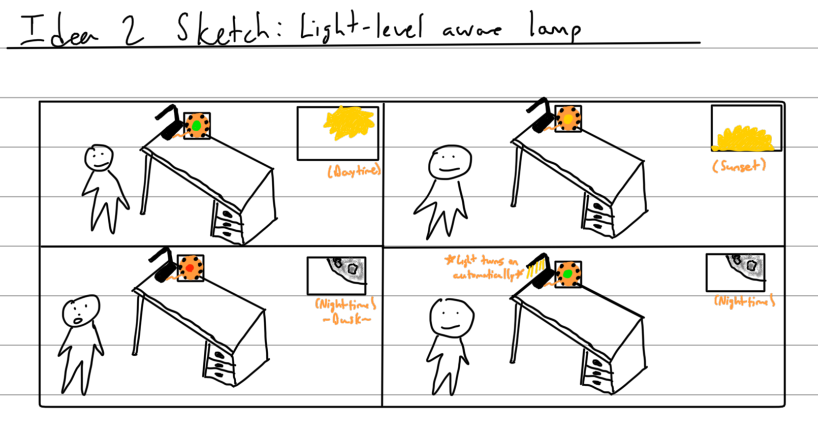 Idea 2 Sketch: Light-level aware lamp
(Daytime)
(Sunset)
(Nighttime)
~Dusk~
*Light turns on
automatically*
(Nighttime)